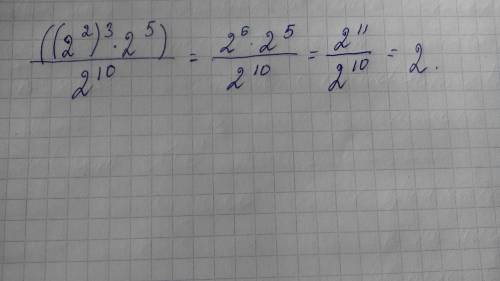 ((2²)³ · 2⁵) / 2¹⁰ = 2⁶ · 2⁵ / 2¹⁰ = 2¹¹ / 2¹⁰ = 2.